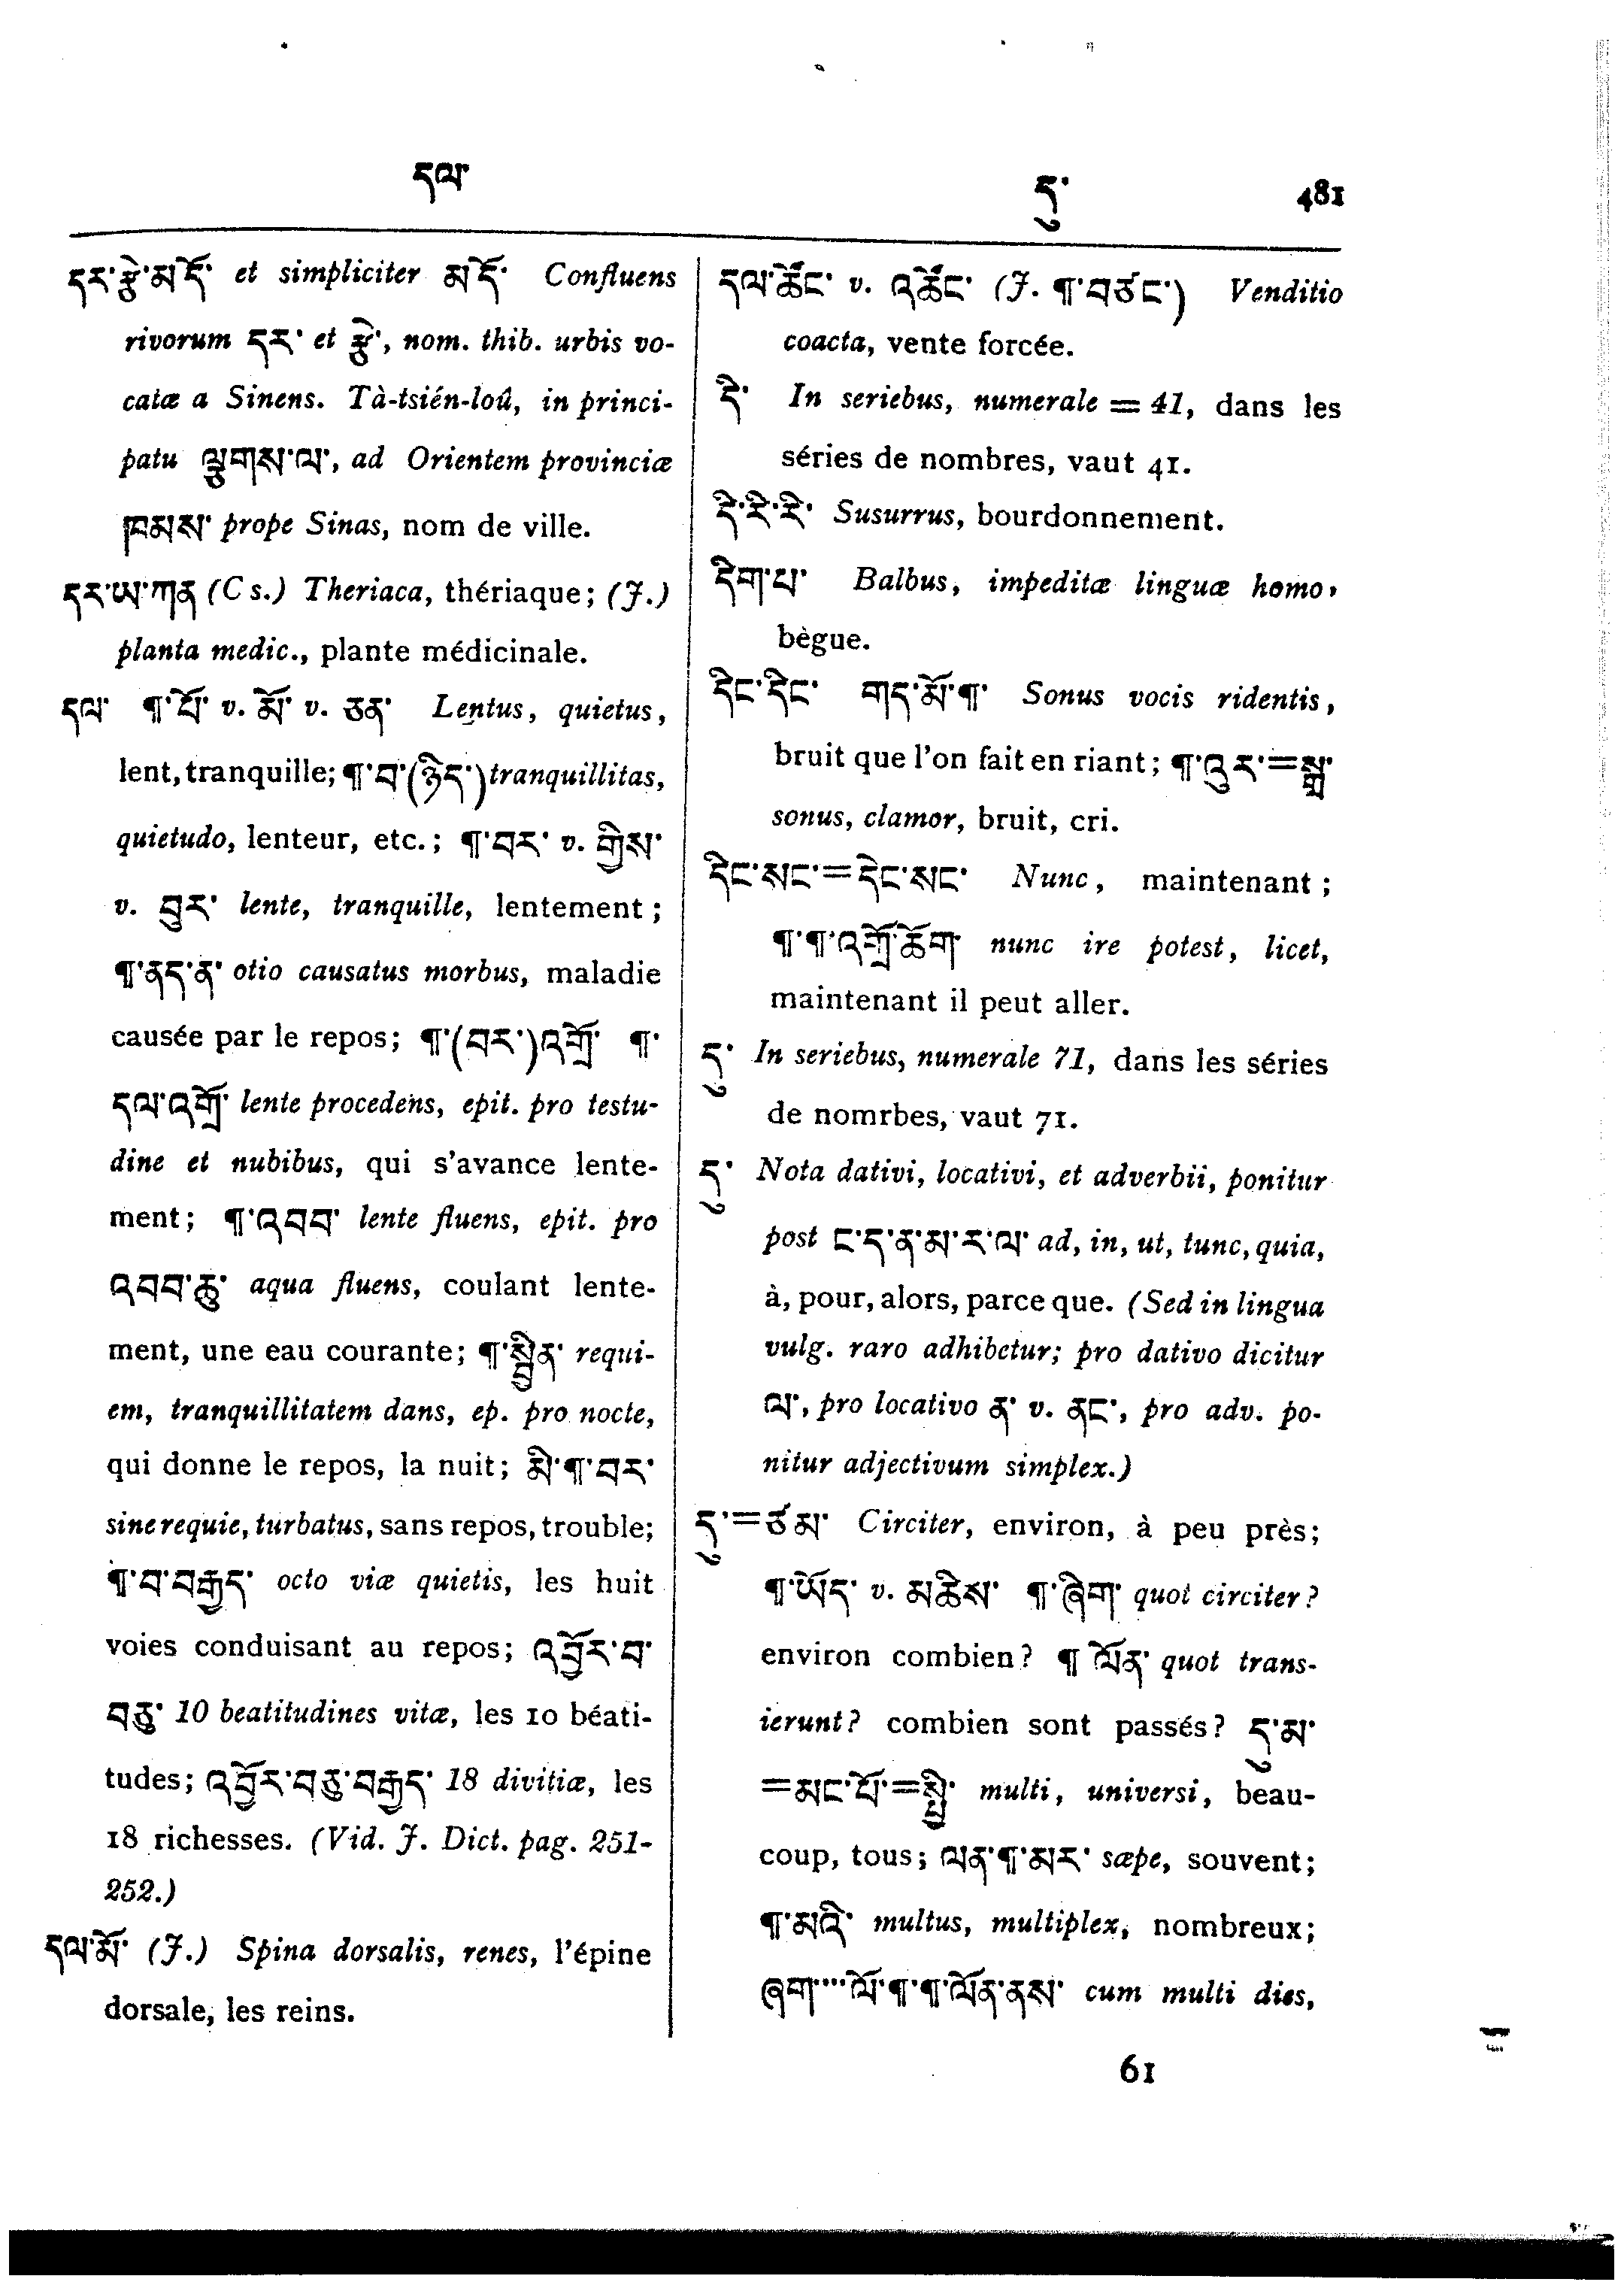 དལ་
དུ་ 481
དར་རྩེ་མདོ་ et simpliciter མདོ་ Confluens
rivorum དར་ et རྩེ་, nom. thib. urbis vo-
catæ a Sinens. Tà-tsién-loû, in princi-
patu ལྕགས་ལ་, ad Orientem provinciæ
ཁམས་ prope Sinas, nom de ville.
དར་ཡ་ཀན (Cs.) Theriaca, thériaque; (J.)
planta medic., plante médicinale.
དལ་ ¶་པོ་ v. མོ་ v. ཅན་ Lentus, quietus,
lent, tranquille; ¶་བ་(ཉིད་) tranquillitas,
quietudo, lenteur, etc.; ¶་བར་ v. གྱིས་
v. བུར་ lente, tranquille, lentement;
¶་ནད་ན་ otio causatus morbus, maladie
causée par le repos; ¶་(བར་)འགྲོ་ ¶་
དལ་འགྲོ་ lente procedens, epit. pro testu-
dine et nubibus, qui s'avance lente-
ment; ¶་འབབ་ lente fluens, epit. pro
འབབ་ཆུ་ aqua fluens, coulant lente-
ment, une eau courante; ¶་སྦྱིན་ requi-
em, tranquillitatem dans, ep. pro nocte,
qui donne le repos, la nuit; མི་¶་བར་
sine requie, turbatus, sans repos, trouble;
¶་བ་བརྒྱད་ octo viæ quietis, les huit
voies conduisant au repos; འབྱོར་བ་
བཅུ་ 10 beatitudines vitæ, les 10 béati-
tudes; འབྱོར་བཅུ་བརྒྱད་ 18 divitiæ, les
18 richesses. (Vid. J. Dict. pag. 251-
252.)
དལ་མོ་ (J.) Spina dorsalis, renes, l'épine
dorsale, les reins.
དལ་ཚོང་ v. འཚོང་ (J. ¶་བཙང་) Venditio
coacta, vente forcée.
དི་ In seriebus, numerale = 41, dans les
séries de nombres, vaut 41.
དི་རི་རི་ Susurrus, bourdonnement.
དིག་པ་ Balbus, impeditæ linguæ homo,
bègue.
དིང་དིང་ གད་མོ་¶་ Sonus vocis ridentis,
bruit que l'on fait en riant; ¶་འུར་=སྒྲ་
sonus, clamor, bruit, cri.
དིང་སང་=དེང་སང་ Nunc, maintenant;
¶་¶་འགྲོ་ཆོག་ nunc ire potest, licet,
maintenant il peut aller.
དུ་ In seriebus, numerale 71, dans les séries
de nomrbes, vaut 71.
དུ་ Nota dativi, locativi, et adverbii, ponitur
post ང་ད་ན་མ་ར་ལ་ ad, in, ut, tunc, quia,
à, pour, alors, parce que. (Sed in lingua
vulg. raro adhibetur; pro dativo dicitur
ལ་, pro locativo ན་ v. ནང་, pro adv. po-
nitur adjectivum simplex.)
དུ་=ཙམ་ Circiter, environ, à peu près;
¶་ཡོད་ v. མཆིས་ ¶་ཞིག་ quot circiter?
environ combien? ¶ ལོན་ quot trans-
ierunt? combien sont passés? དུ་མ་
=མང་པོ་=སྤྱི་ multi, universi, beau-
coup, tous; ལན་¶་མར་ sæpe, souvent;
¶་མའི་ multus, multiplex, nombreux;
ཞག་···ལོ་¶་¶་ལོན་ནས་ cum multi dies,
61